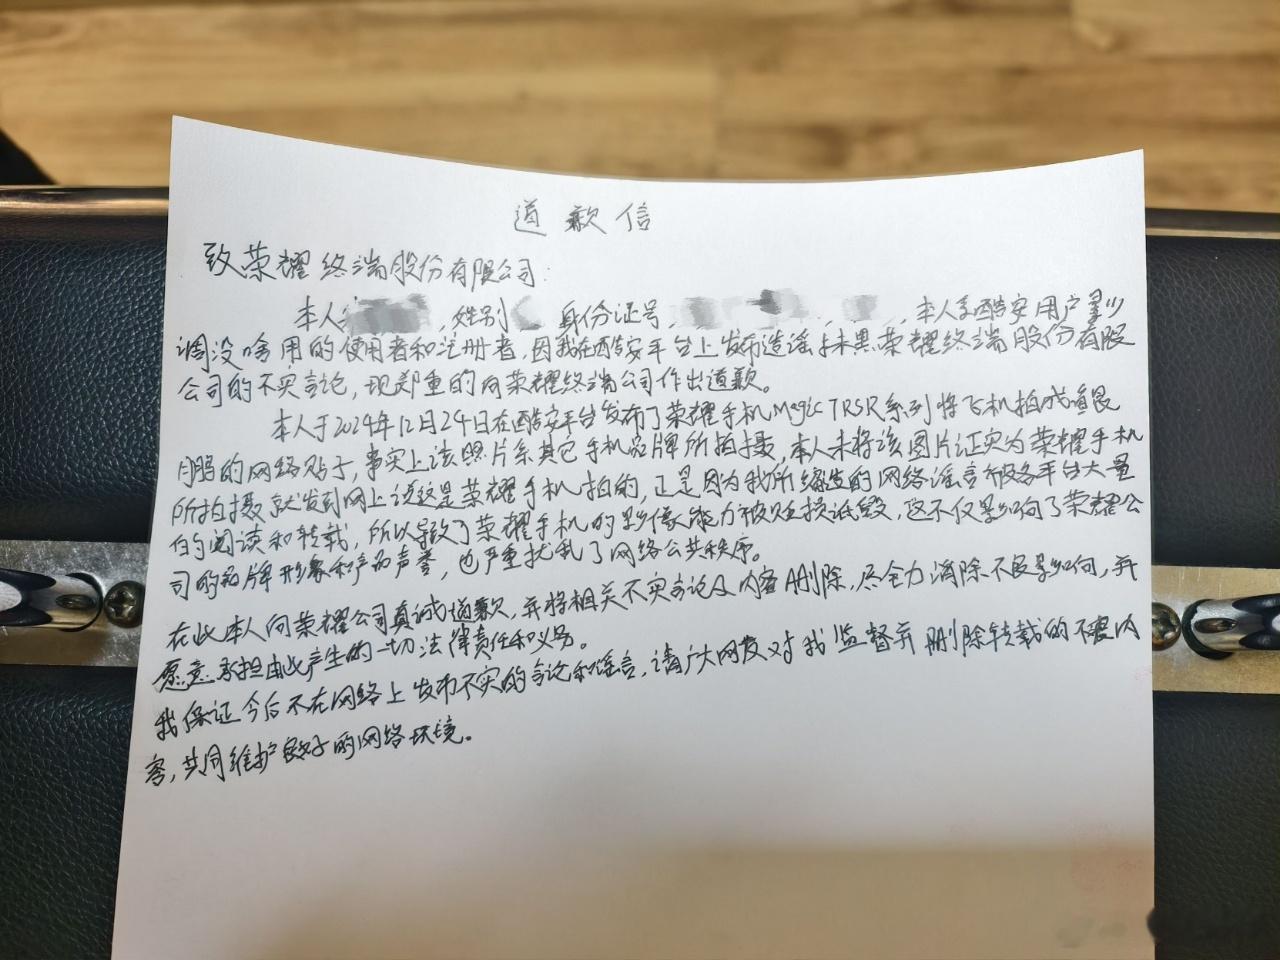 道歉信
致荣耀终端股份有限公司：
本人，性别 身份证号，本人系酷安用户
调没啥用的使用者和注册者，因我在酷安平台上发布造谣抹黑荣耀终端股份有限
公司的不实言论，现郑重的向荣耀终端公司作出道歉。
本人于2024年12月24日在酷安平台发布了荣耀手机Magic 7RSR系列将飞机拍成
鹏的网络贴子，事实上该照片系其它手机品牌所拍摄，本人未将该图片证实为荣耀手机
所拍摄就发到网上说这是荣耀手机拍的，正是因为我所编造的网络谣言被各平台大量
的阅读和转载，所以导致了荣耀手机的影像能力被贬损诋毁，这不仅影响了荣耀公
司的品牌形象和产品声誉，也严重扰乱了网络公共秩序。
在此本人向荣耀公司真诚道歉，并将相关不实言论及内容删除，尽全力消除不良影响，并
愿意承担由此产生的一切法律责任和义务。
我保证今后不在网络上发布不实的言论和谣言，请广大网友对我监督并删除转载的不良内
容，共同维护良好的网络环境。